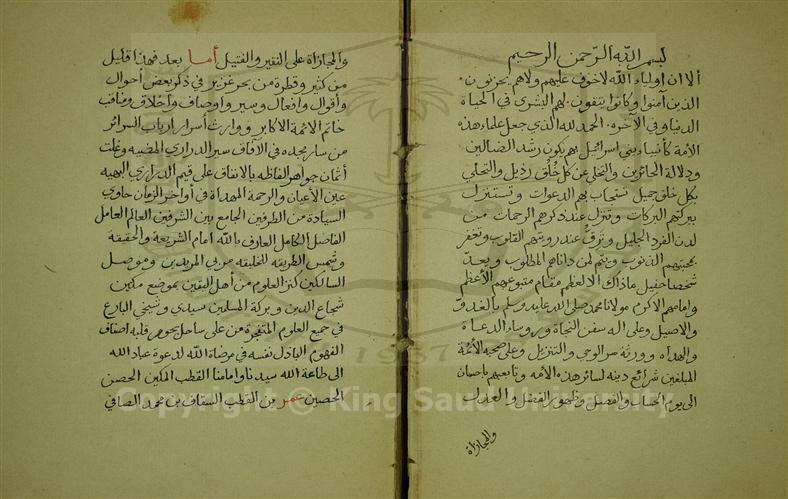 بسم الله الرحمن الرحيم
ألا ان اولياء الله لاخوف عليهم ولاهم يحزنون
الذين آمنوا وكانوا يتقون لهم البشرى في الحياة
الدنيا وفي الآخره الحمد لله الذي جعل علماء هذه
الأمة كأنبياء بني اسرائيل بهم يكون رشد الضالين
ودلالة الحائرين والتخلي عن كل خلق رذيل والتحلي
بكل خلق جميل تستجاب بهم الدعوات وتستنزل
ببركتهم البركات وتنزل عند ذكرهم الرحمات من
لدن الفرد الجليل وترق عند رويتهم القلوب وتغفر
بمحبتهم الذنوب ويتم لمن داناهم المطلوب
شخصا حفيل ماذاك الا لعظم مقام متبوعهم الأعظم
وامامهم الاكرم مولانا محمد صلى الله عليه وسلم بالغدو
والاصيل وعلى اله سفن النجاة وروساء الدعاة
والهداه وورثة سر الوحي والتنزيل وعلى صحبه الأئمة
المبلغين شرائع دينه لسائر هذه الأمه وتابعيهم باحسان
الى يوم الحساب والفصل وظهور الفضل والعدل
والمجازاة
والمجازاة على النقير والفتيل أما بعد فهذا قليل
من كثير وقطرة من بحر غزير في ذكر بعض أحوال
وأقوال وافعال وسير واوصاف وأخلاق ومناقب
خاتم الائمة الاكابر ووارث أسرار ارباب السرائر
من سار بمجده في الآفاق سير الدراري المضيه وغلت
أثمان جواهر الفاظه بالاتفاق على قيم الدراري البهيه
عين الأعيان والرحمة المهداة في أواخر الزمان حاوي
السيادة من الطرفين الجامع بين الشرفين العالم العامل
الفاضل الكامل العارف بالله امام الشريعة والحقيقة
وشمس الطريقه الخليقه مربي المريدين وموصل
السالكين كنز العلوم من أهل اليقين بموضع مكين
شجاع الدين وبركة المسلمين سيدي وشيخي البارع
في جميع العلوم المتفجرة من على ساحل بحور قلبه اصناف
الفهوم الباذل نفسه في مرضاة الله لدعوة عباد الله
الى طاعة الله سيدنا وامامنا القطب المكين الحصن
الحصين عمر بن القطب السقاف بن محمد الصافي
Copyright © King Saud University
1957